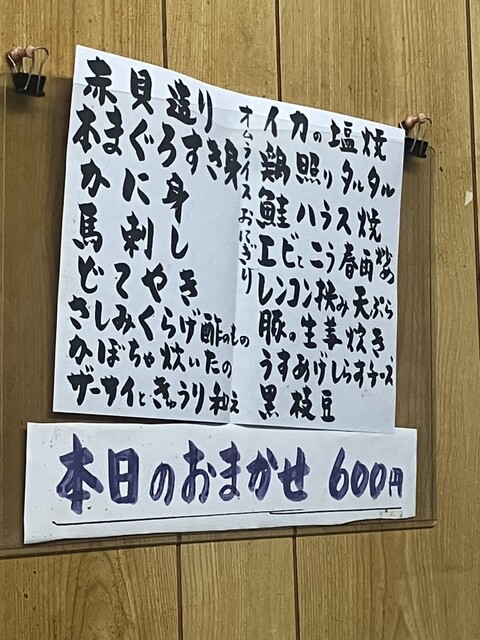 赤貝造り
本まぐろすき身
かに身
馬刺し
どてやき
さしみくらげ酢のもの
かぼちゃ炊いたの
ザーサイときゅうり和え
オムライスおにぎり
イカの塩焼
鶏照りタルタル
鮭ハラス焼
エビとニラ春雨炒め
レンコン挟み天ぷら
豚の生姜炊き
うすあげしらすチーズ
黒枝豆
本日のおまかせ 600円